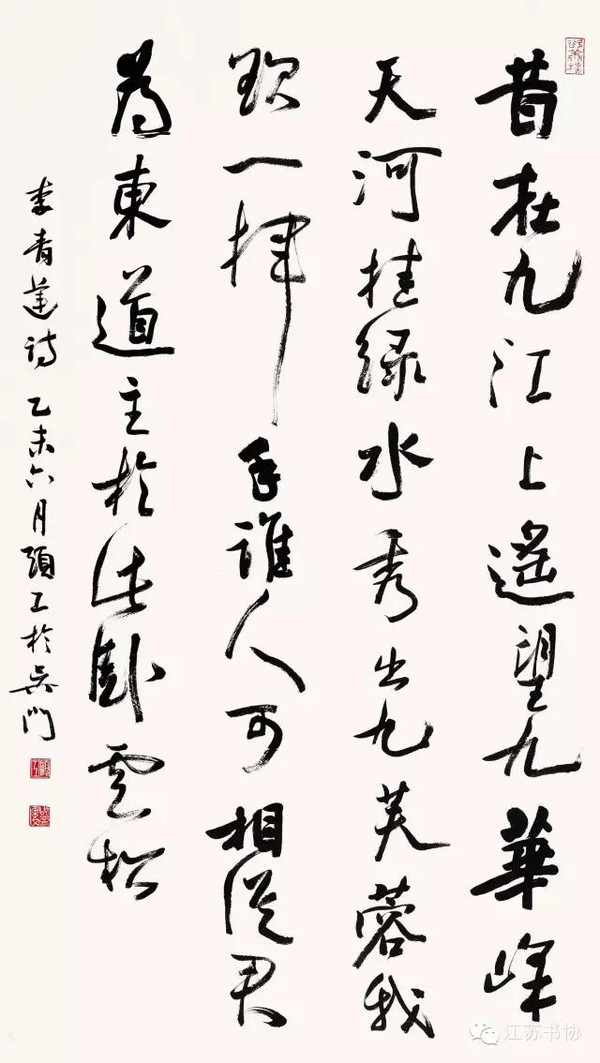 昔在九江上遙望九華峰
天河挂绿水秀出九芙蓉我
欲一揮手誰人可相從君
為東道主於此臥雲松
李青蓮诗 乙未六月顾工於吴門
江苏书协